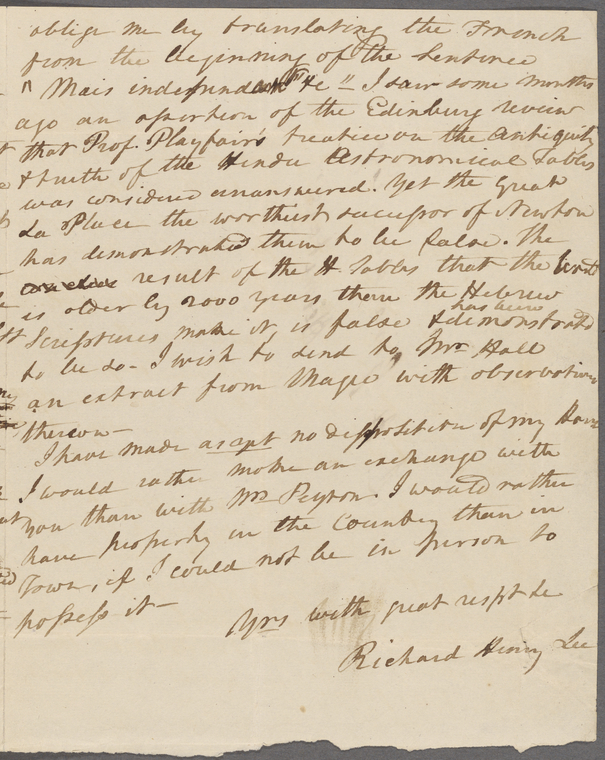 oblige me by translating the French
from the beginning of the Sentence
"Mais independant &c" I saw some months
ago an assertion of the Edinburg review
that Prof. Playfair's treatise on the antiquity
& truth of the Hindu Astronomical Tables
was considered unanswered. Yet the Great
La Place the worthiest successor of Newton
has demonstrated them to be false. The
result of the H Tables that the World
is older by 2000 years than the Hebrew
Scriptures make it is false & has been demonstrated
to be so - I wish to send to Mr. Hall
an extract from Magee with observations
thereon -
I have made as yet no disposition of my House
I would rather make an exchange with
you than with Mr Peyton. I would rather
have property in the Country than in
Town, if I could not be in person to
possess it -
Yrs with great respt &c
Richard Henry Lee